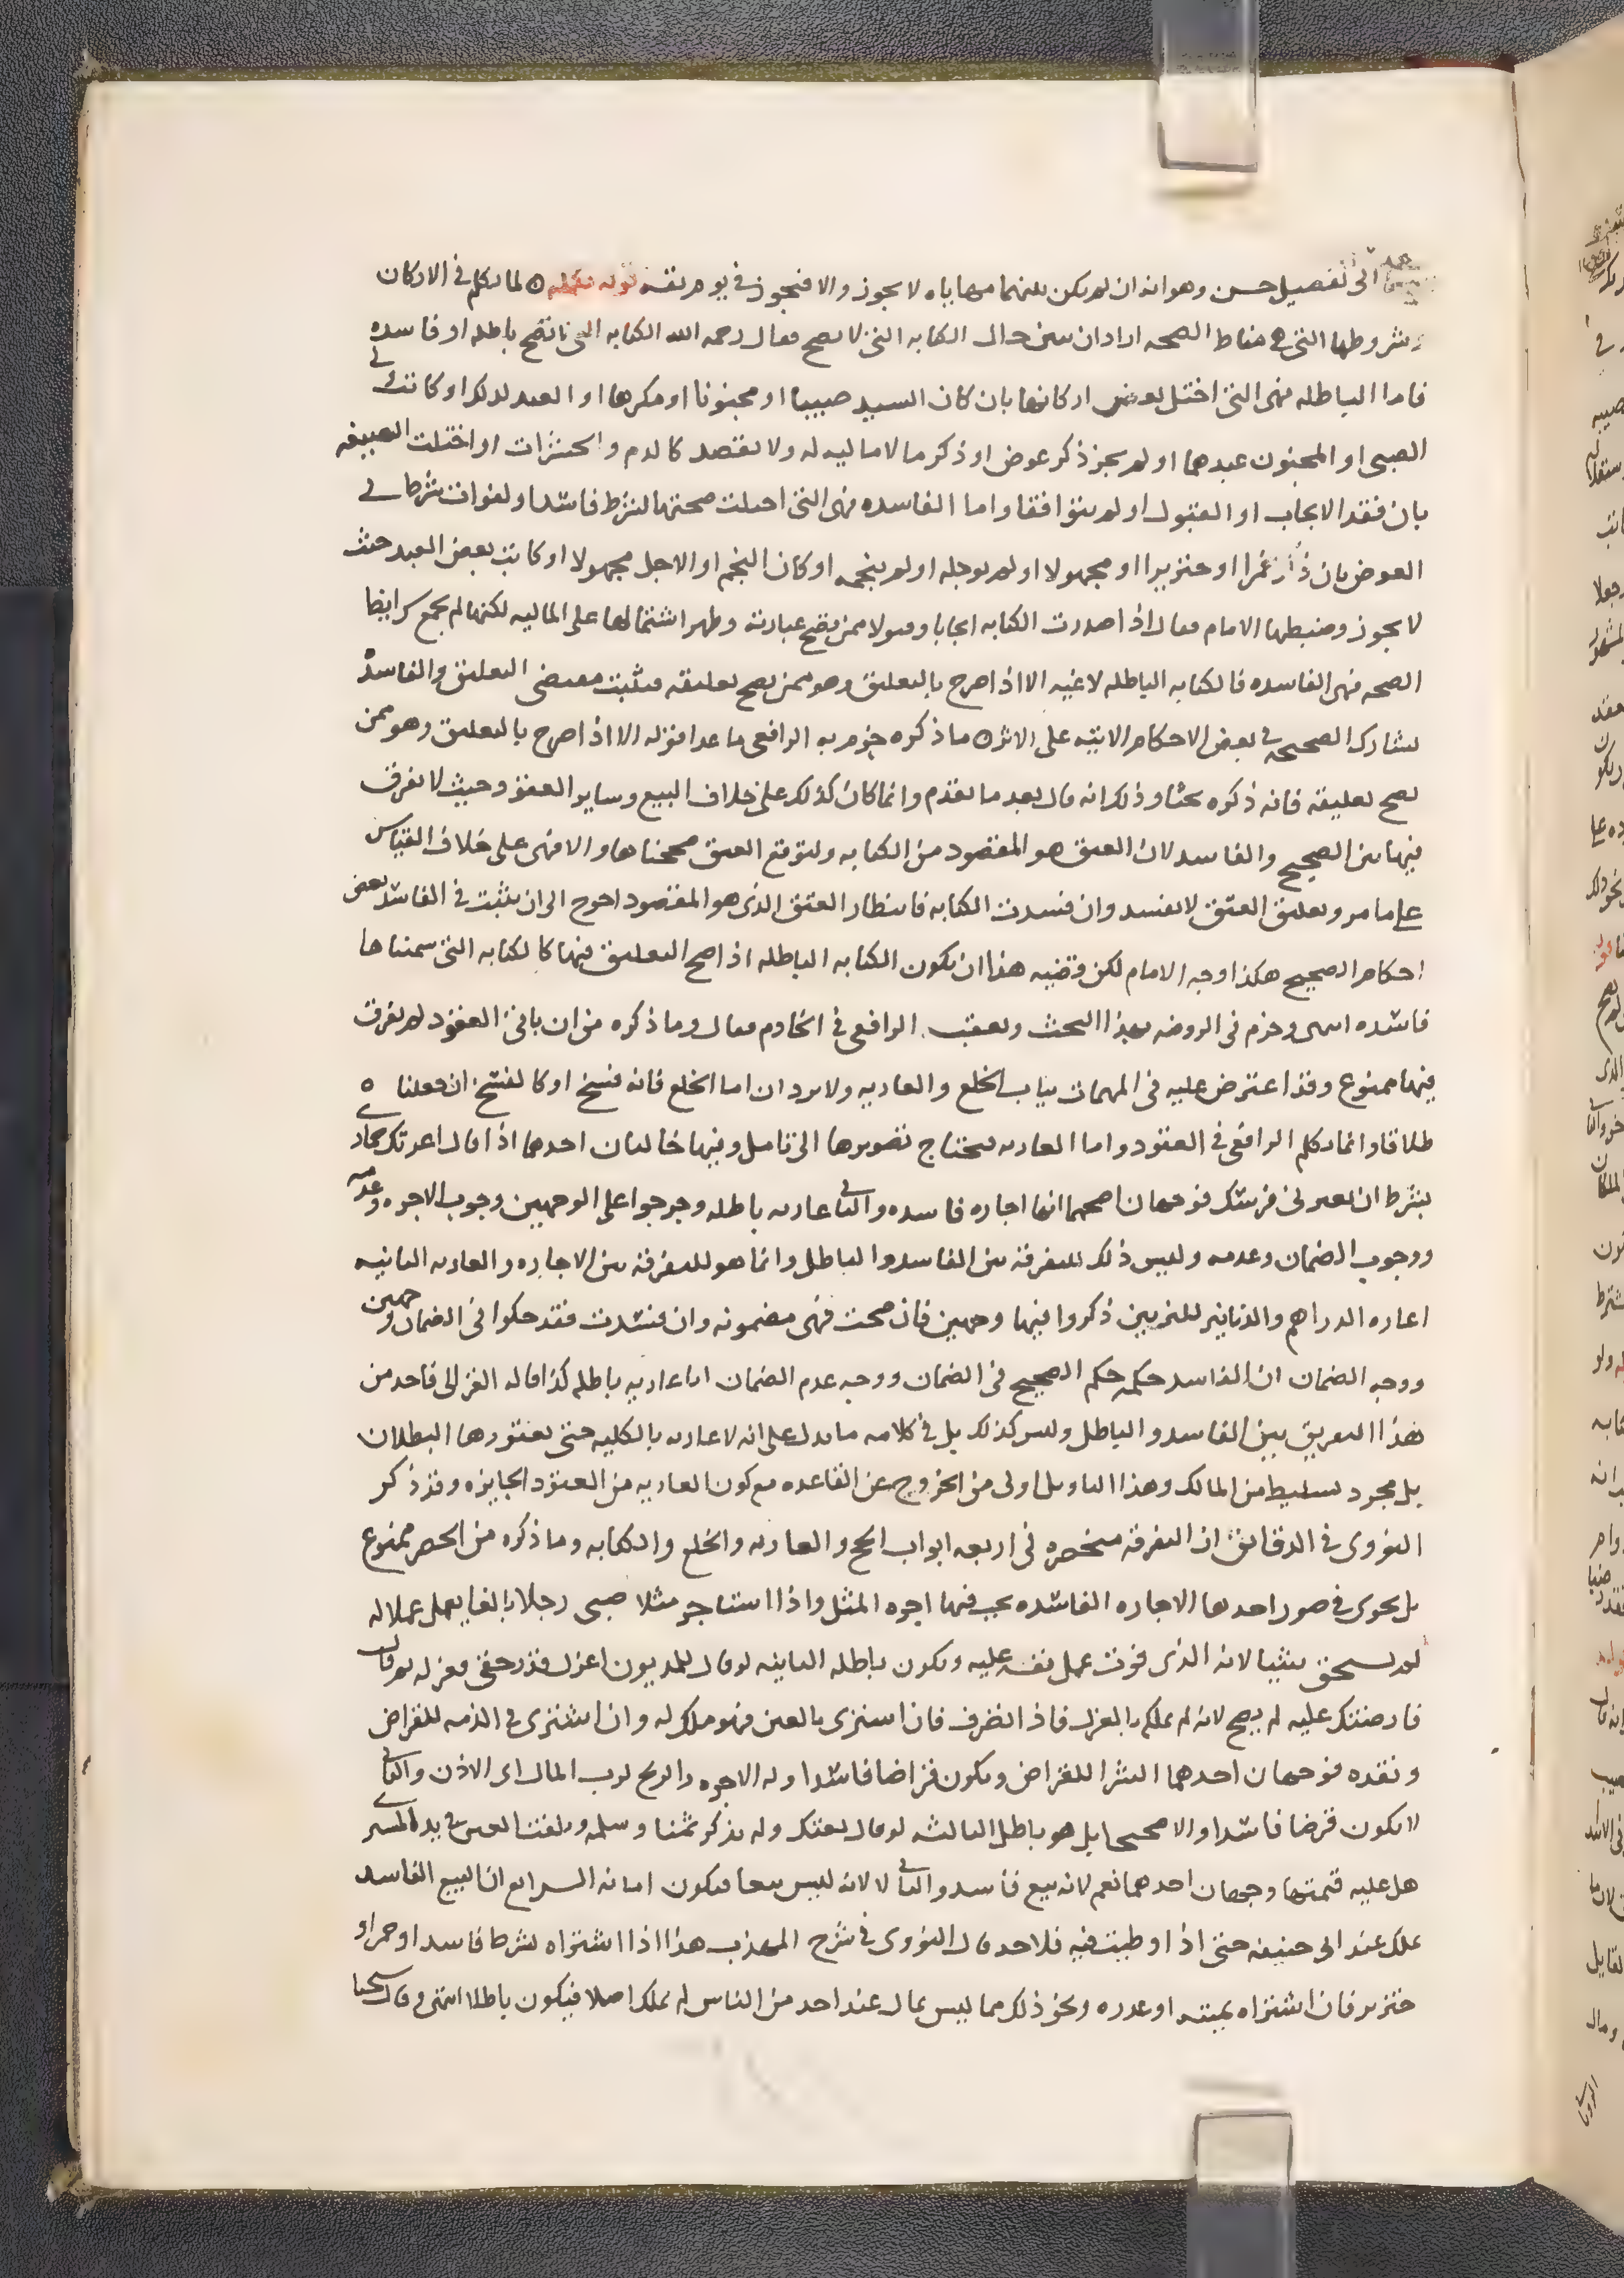 الى تفصيل حسن وهو انه ان لم يكن بينهما مهاياه لا يجوز والا فيجوز في يوم نفسه قوله تكمله ٥ لما تكلم في الاركان
وشروطها التي هي مناط الصحه اراد ان يبين حال الكتابه التي لا تصح فقال رحمه الله الكتابه التي لا تصح باطله او فاسده
فاما الباطله فهي التي اختل بعض اركانها بان كان السيد صبيا او مجنونا او مكرها او العبد كذلك او كاتب ولي
الصبي او المجنون عبدهما او لم يجر ذكر عوض او ذكر ما لا ماليه له ولا يقصد كالدم والحشرات او اختلت الصيغه
بان فقد الايجاب او القبول او لم يتوافقا واما الفاسده فهي التي اختلت صحتها لشرط فاسد او لفوات شرط في
العوض بان ذكر خمرا او خنزيرا او مجهولا او لم يوجله او لم ينجمه او كان النجم او الاجل مجهولا او كاتب بعض العبد حيث
لا يجوز وضبطها الامام فقال اذا صدرت الكتابه ايجابا وقبولا ممن تصح عبارته وظهر اشتمالها على الماليه لكنها لم تجمع شرايط
الصحه فهي الفاسده فالكتابه الباطله لاغيه الا اذا صرح بالتعليق وهو ممن يصح تعليقه فيثبت مقتضى التعليق والفاسده
تشارك الصحيحه في بعض الاحكام الاتيه على الاثر ٥ ما ذكره جزم به الرافعي ما عدا قوله الا اذا صرح بالتعليق وهو ممن
يصح تعليقه فانه ذكره بحثا وذلك انه قال بعد ما تقدم وانما كان كذلك على خلاف البيع وساير العقود حيث لا نفرق
فيها بين الصحيح والفاسد لان العتق هو المقصود من الكتابه ولتوقع العتق صححناها والا فهي على خلاف القياس
على ما مر وتعليق العتق لا يفسد وان فسدت الكتابه فانتظار العتق الذي هو المقصود احوج الى ان يثبت في الفاسد بعض
احكام الصحيح هكذا وجه الامام لكن قضيه هذا ان تكون الكتابه الباطله اذا صح التعليق فيها كالكتابه التي سميناها
فاسده انتهى وجزم في الروضه بهذا البحث وتعقب الرافعي في الخادم فقال وما ذكره من ان باقي العقود لم نفرق
فيها ممنوع وقد اعترض عليه في المهمات بباب الخلع والعاريه ولا يردان اما الخلع فانه فسخ او كالفسخ ان جعلناه
طلاقا وانما تكلم الرافعي في العقود واما العاريه فيحتاج تصويرها الى تامل وفيها حالتان احدهما اذا قال اعرتك حماري
بشرط ان تعيرني فرسك فوجهان اصحهما انها اجاره فاسده والثاني عاريه باطله وخرجوا على الوجهين وجوب الاجره وعدمه
ووجوب الضمان وعدمه وليس ذلك للتفرقه بين الفاسد والباطل وانما هو للتفرقه بين الاجاره والعاريه الثانيه
اعاره الدراهم والدنانير للتزيين ذكروا فيها وجهين فان صحت فهي مضمونه وان فسدت فقد حكوا في الضمان وجهين
ووجه الضمان ان الفاسد حكمه حكم الصحيح في الضمان ووجه عدم الضمان انها عاريه باطله كذا قاله الغزالي فاخذ من
هذا التفريق بين الفاسد والباطل وليس كذلك بل في كلامه ما يدل على انه لا عاريه بالكليه حتى يعتورها البطلان
بل مجرد تسليط من المالك وهذا التاويل اولى من الخروج عن القاعده مع كون العاريه من العقود الجايزه وقد ذكر
النووي في الدقائق ان التفرقه منحصره في اربعه ابواب الحج والعاريه والخلع والكتابه وما ذكره من الحصر ممنوع
بل يجري في صور احدها الاجاره الفاسده يجب فيها اجره المثل واذا استاجر مثلا صبي رجلا بالغا يعمل عملا له
لم يستحق شيئا لانه الذي فوت عمل نفسه عليه وتكون باطله الثانيه لو قال للمديون اعزل قدر حقي فعزله ثم قال
قارضتك عليه لم يصح لانه لم يملكه بالعزل فاذا تصرف فان اشترى بالعين فهو ملك له وان اشترى في الذمه للقراض
ونقده فوجهان احدهما الشرا للقراض ويكون قراضا فاسدا وله الاجره والربح لرب المال اي الاذن والثاني
لا يكون قرضا فاسدا ولا صحيحا بل هو باطل الثالثه لو قال بعتك ولم يذكر ثمنا وسلمه وتلفت العين في يد المشتري
هل عليه قيمتها وجهان احدهما نعم لانه بيع فاسد والثاني لا لانه ليس بيعا فيكون امانه الرابع ان البيع الفاسد
يملك عند ابي حنيفه حتى اذا وطيت فيه فلا حد قال النووي في شرح المهذب هذا اذا اشتراه بشرط فاسد او خمر او
خنزير فان اشتراه بميته او عذره ونحو ذلك مما ليس بمال عند احد من الناس لم يملك اصلا فيكون باطلا انتهى وقال شيخنا